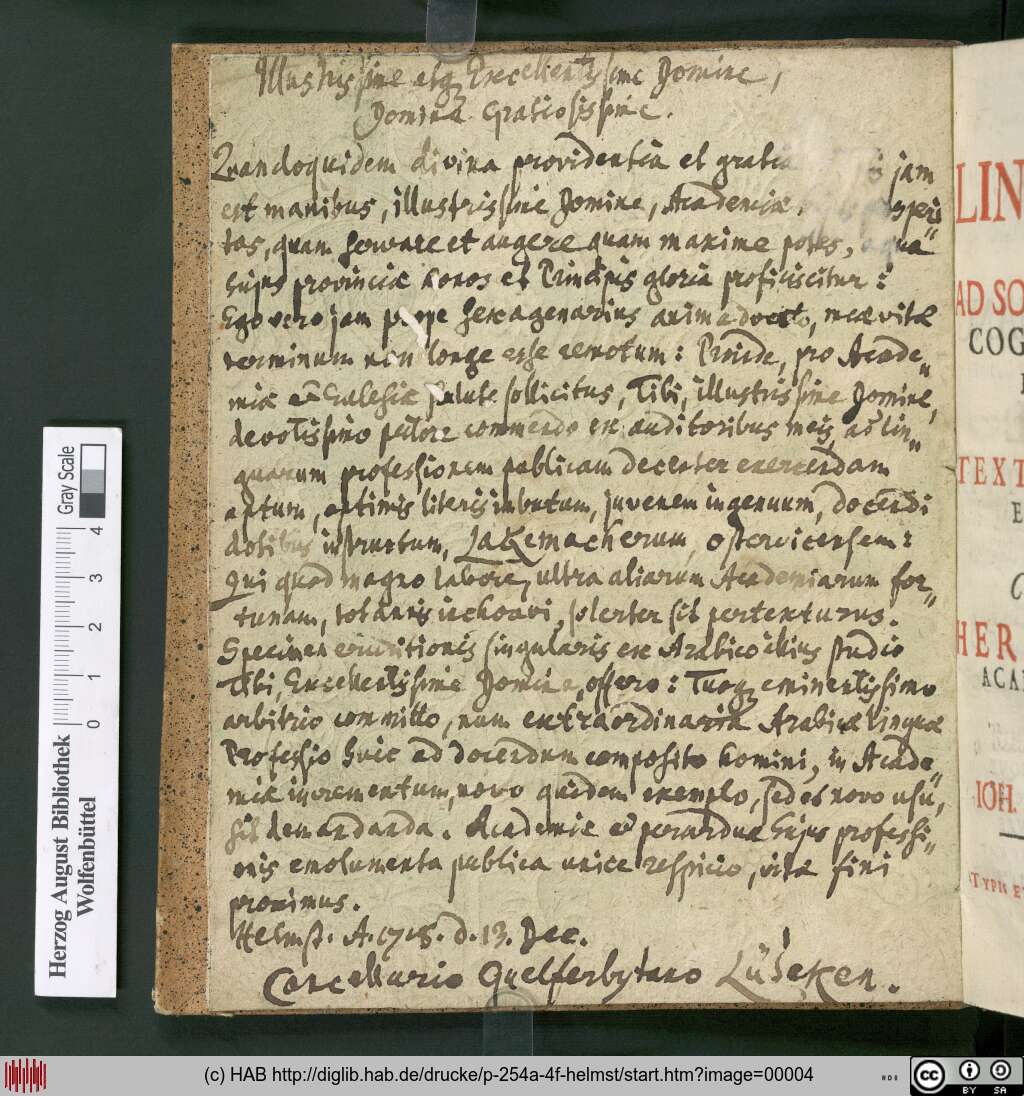 Illustrissime atq Excellentissime Domine,
Domine Gratiosissime.
Quandoquidem divina providentia et gratia jam
est manibus, illustrissime Domine, Academiæ speri
tas, quam servare et augere quam maxime potes, a qua
hujus provinciæ honos et Principis gloria proficiscitur:
Ego vero jam prope sexagenarius animadverto, meæ vitæ
terminum non longe esse remotum: Proinde, pro Acade„
miæ et Ecclesiæ salute sollicitus, Tibi, illustrissime Domine,
devotissimo pectore commendo ex auditoribus meis, ad lin„
guarum professionem publicam decenter exercendam
aptum, optimis literis imbutum, juvenem ingenuum, docendi
dotibus instructum, Lakemacherum, ostervicensem:
Qui quod magno labore, ultra aliarum Academiarum for„
tunam, tot annis inchoavi, solerter sit pertexturus.
Specimen eruditionis singularis ex Arabico illius studio
Tibi, Excellentissime Domine, offero: Tuoq eminentissimo
arbitrio committo, num extraordinaria Arabicæ linguæ
Professio huic ad docendum composito homini, in Acade„
miæ incrementum, novo quidem exemplo, sed et novo usu,
sit demandanda. Academiæ et perarduæ hujus professi„
onis emolumenta publica unice respicio, vitæ fini
proximus.
Helmst. A. 1718. d. 13. Dec.
Cancellario Guelferbytano Lüdeken.
LIN
AD SO
COG
TEXT
E
C
HER
ACA
IOH.
TYPIS E
Herzog August Bibliothek
Wolfenbüttel
Gray Scale
0 1 2 3 4
(c) HAB http://diglib.hab.de/drucke/p-254a-4f-helmst/start.htm?image=00004
cc
BY SA